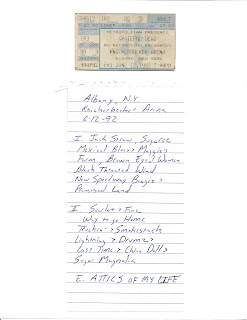 METROPOLITAN PRESENTS
GRATEFUL DEAD
KNICKERBOCKER ARENA
Albany, N.Y.
Knickerbocker Arena
6-12-92
I. Jack Straw, Sugaree
Mexical Blues > Maggies
Farm, Brown Eyed Women
Black Throated Wind
New Speedway Boogie >
Promised Land
II. Scarlet > Fire
Way to go Home
Truckin' > Smokestack
Lightning > Drumz >
Last Time > China Doll >
Sugar Magnolia
E. ATTICS OF MY LIFE